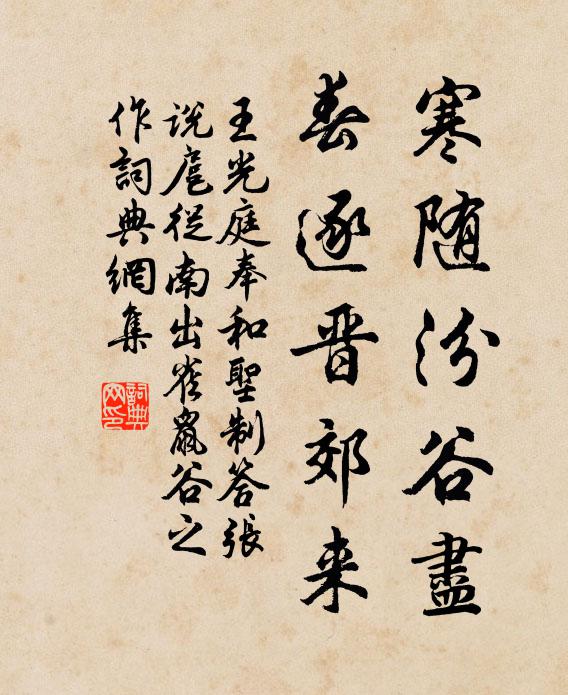 寒随汾谷盡
春逐晋郊来
王光庭奉和聖制答張
说扈從南出雀鼠谷之
作詞典網集
詞典
网印